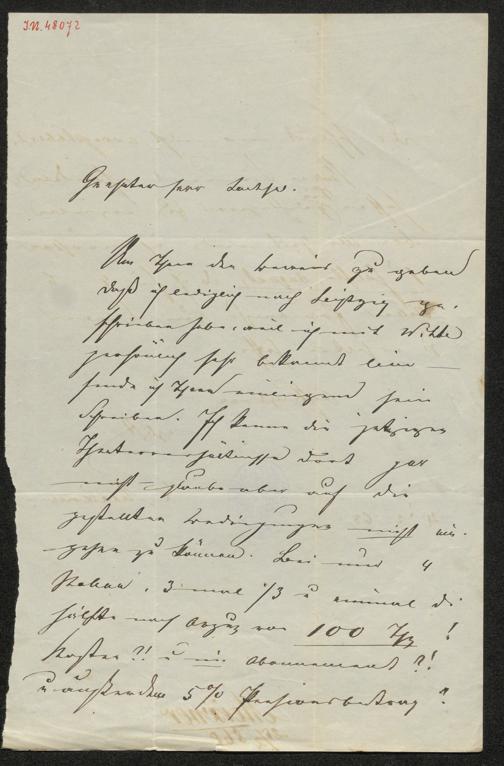 I.N. 48072
Geehrter Herr Doctor.
Um Ihnen den Beweis zu geben
daß ich lediglich nach Leipzig ge-
schrieben habe, weil ich mit Witte
persönlich sehr bekannt bin —
sende ich Ihnen einliegend sein
Schreiben. Ich kenne die jetzigen
Theaterverhältnisse dort gar
nicht — glaube aber auf die
gestellten Bedingungen nicht ein-
gehen zu können. Bei nur 4
Rollen, 3 mal 1/3 u einmal die
Hälfte nach Abzug von 100 Thr !
Kosten ?! u im Abonnement ?!
u außerdem 5% Pensionsbeitrag ?